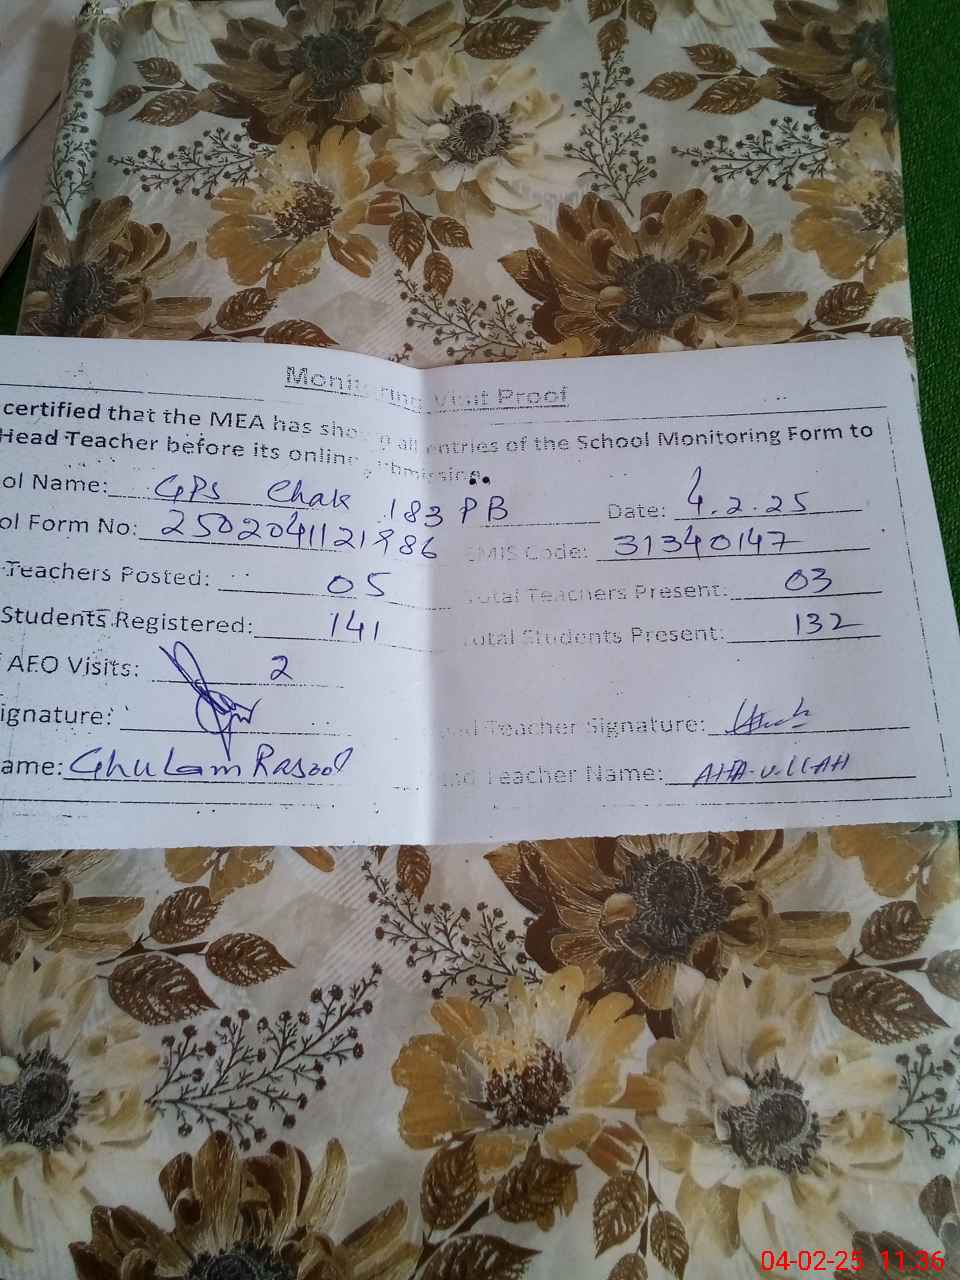 Monitoring Visit Proof
certified that the MEA has shown all entries of the School Monitoring Form to
Head Teacher before its online submission.
ol Name: GPS Chak 183 PB Date: 4.2.25
ol Form No: 2502041121986 EMIS Code: 31340147
Teachers Posted: 05 Total Teachers Present: 03
Students Registered: 141 Total Students Present: 132
AEO Visits: 2
ignature: Teacher Signature:
ame: Ghulam Rasool Teacher Name: ATTA-ULLAH
04-02-25 11:36